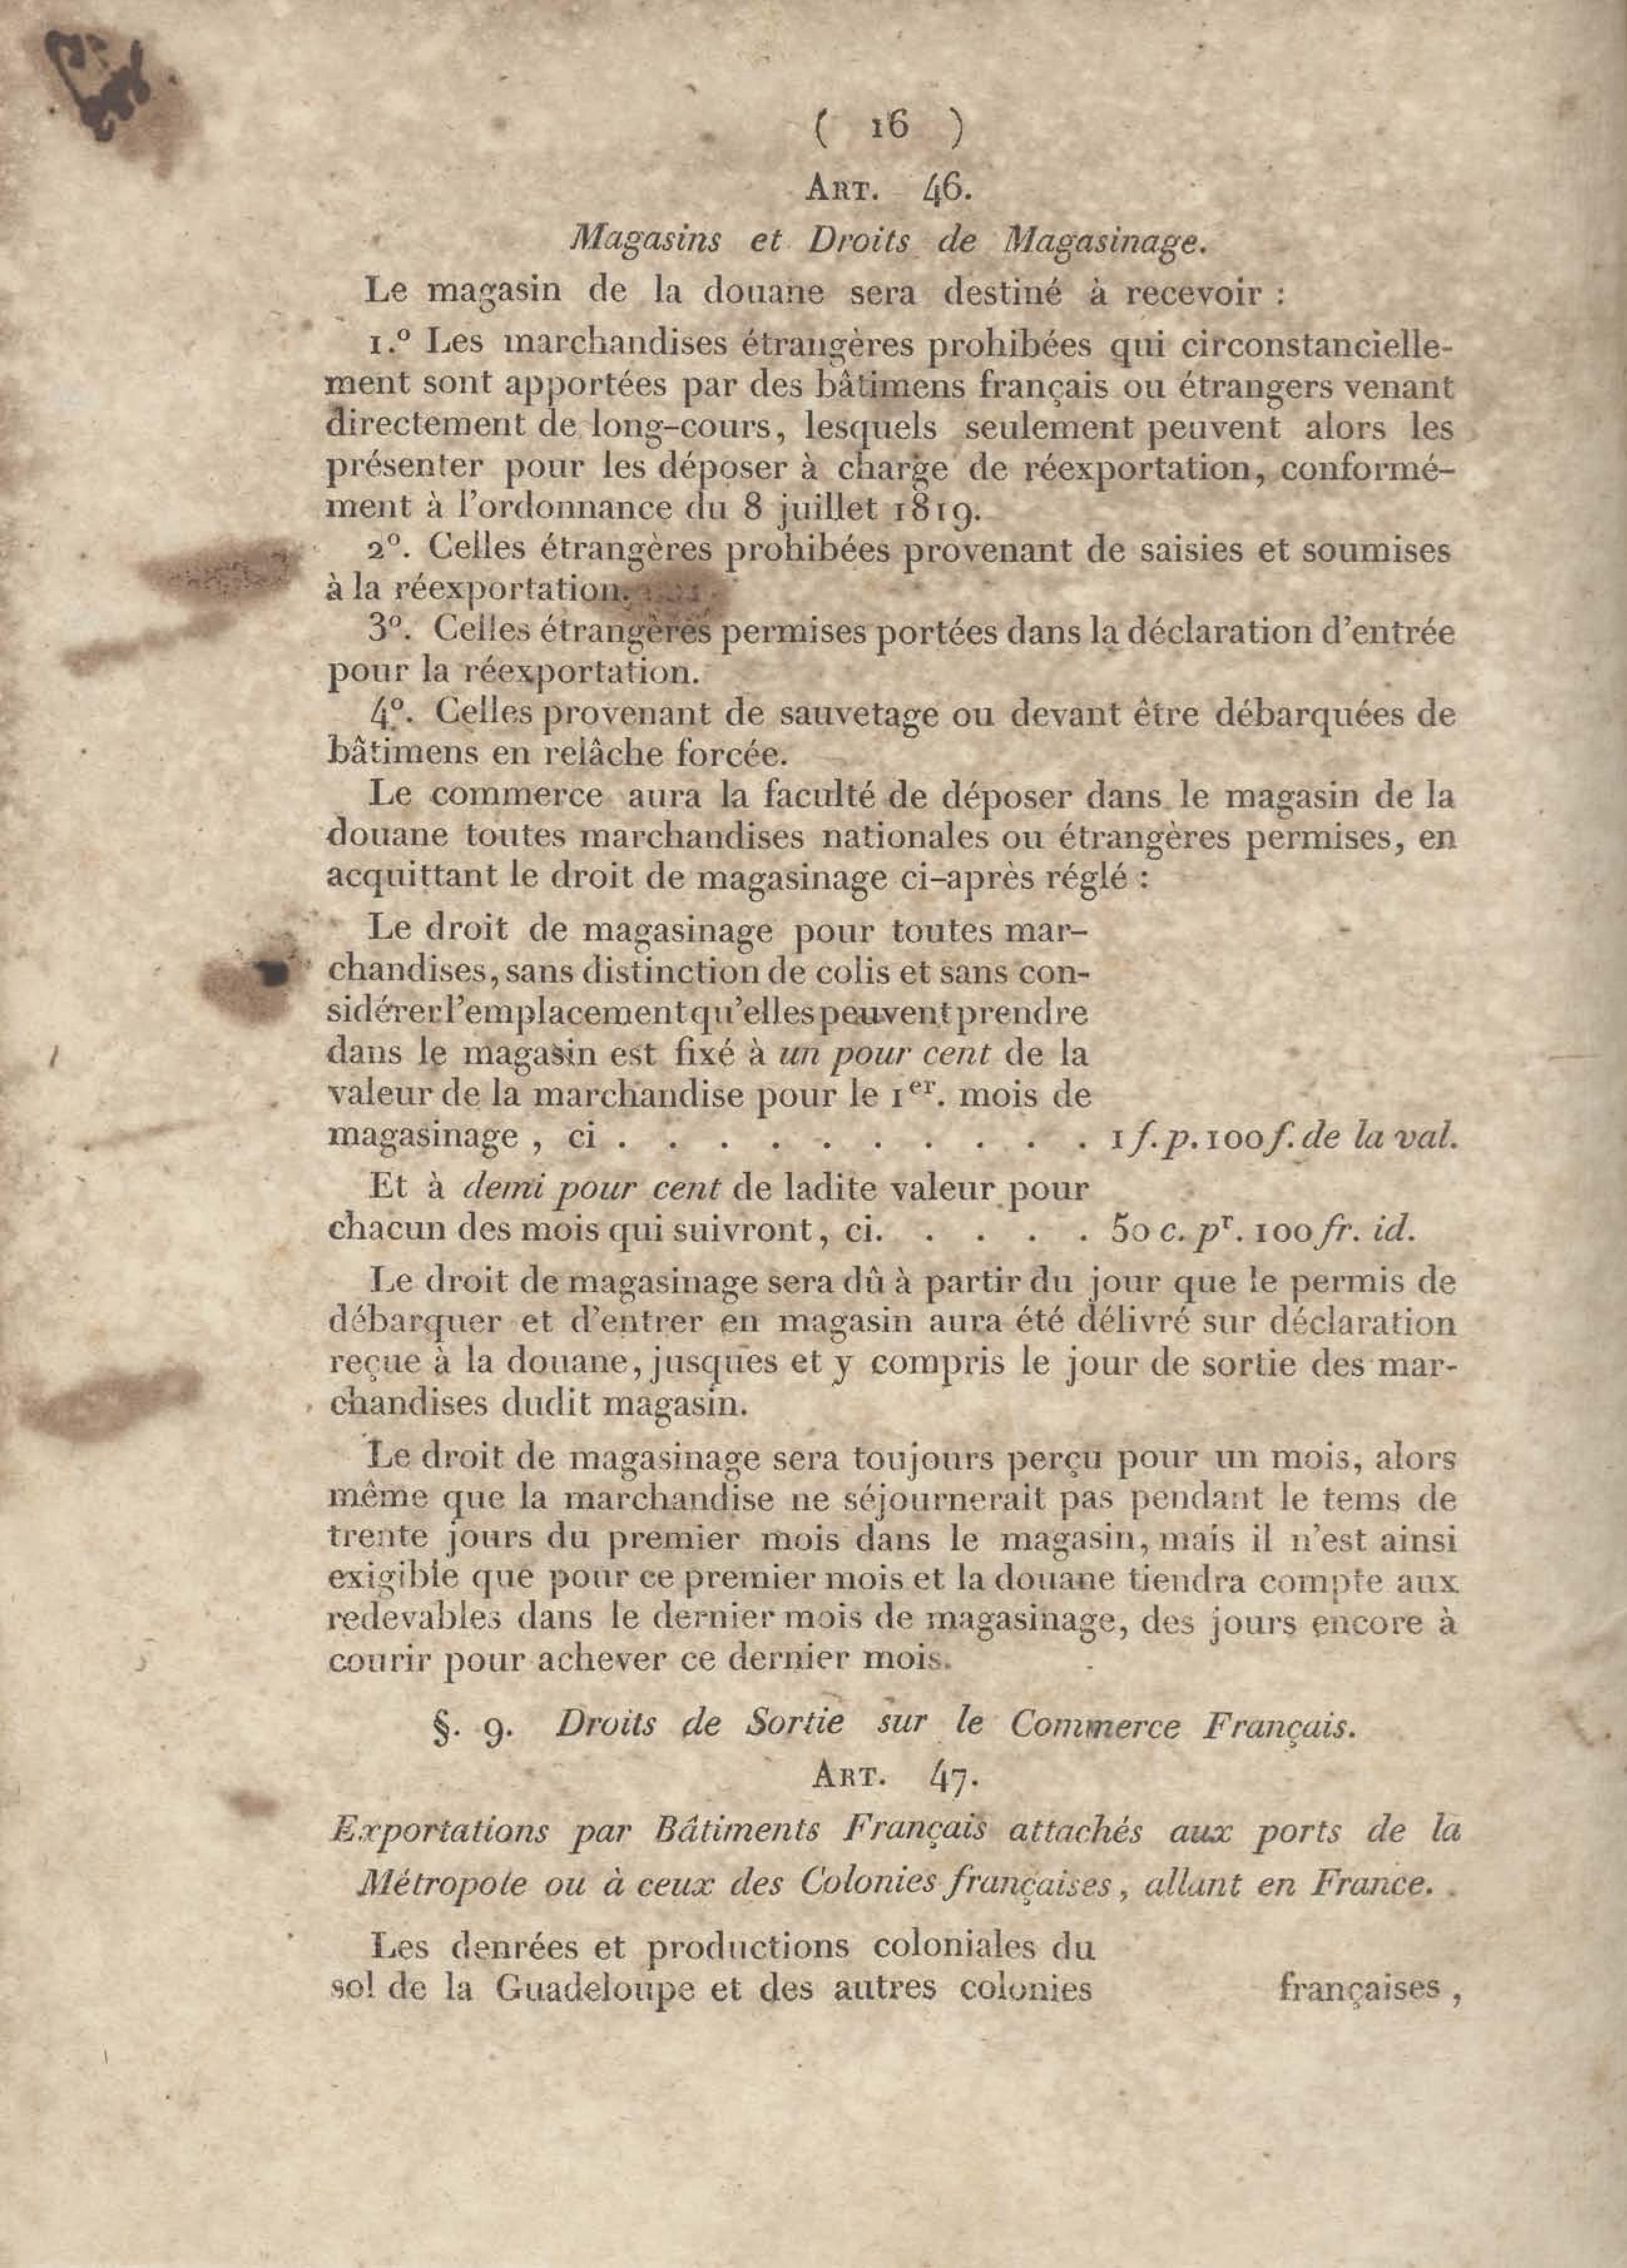 ( 16 )
ART. 46.
Magasins et Droits de Magasinage.
Le magasin de la douane sera destiné à recevoir :
1.º Les marchandises étrangères prohibées qui circonstancielle-
ment sont apportées par des bâtimens français ou étrangers venant
directement de long-cours, lesquels seulement peuvent alors les
présenter pour les déposer à charge de réexportation, conformé-
ment à l'ordonnance du 8 juillet 1819.
2º. Celles étrangères prohibées provenant de saisies et soumises
à la réexportation.
3º. Celles étrangères permises portées dans la déclaration d'entrée
pour la réexportation.
4º. Celles provenant de sauvetage ou devant être débarquées de
bâtimens en relâche forcée.
Le commerce aura la faculté de déposer dans le magasin de la
douane toutes marchandises nationales ou étrangères permises, en
acquittant le droit de magasinage ci-après réglé :
Le droit de magasinage pour toutes mar-
chandises, sans distinction de colis et sans con-
sidérer l'emplacement qu'elles peuvent prendre
dans le magasin est fixé à un pour cent de la
valeur de la marchandise pour le 1er. mois de
magasinage , ci . . . . . . . . . . 1 f. p. 100 f. de la val.
Et à demi pour cent de ladite valeur pour
chacun des mois qui suivront, ci. . . . . 50 c. pr. 100 fr. id.
Le droit de magasinage sera dû à partir du jour que le permis de
débarquer et d'entrer en magasin aura été délivré sur déclaration
reçue à la douane, jusques et y compris le jour de sortie des mar-
chandises dudit magasin.
Le droit de magasinage sera toujours perçu pour un mois, alors
même que la marchandise ne séjournerait pas pendant le tems de
trente jours du premier mois dans le magasin, mais il n'est ainsi
exigible que pour ce premier mois et la douane tiendra compte aux
redevables dans le dernier mois de magasinage, des jours encore à
courir pour achever ce dernier mois.
§. 9. Droits de Sortie sur le Commerce Français.
ART. 47.
Exportations par Bâtiments Français attachés aux ports de la
Métropole ou à ceux des Colonies françaises, allant en France.
Les denrées et productions coloniales du
sol de la Guadeloupe et des autres colonies
françaises ,